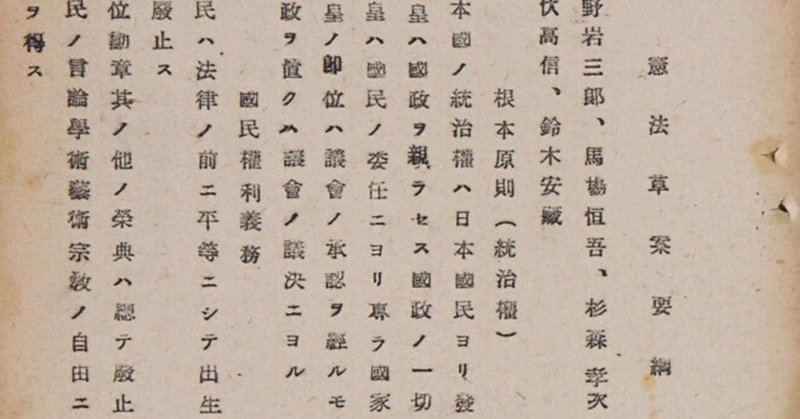 憲法草案要綱
野岩三郎、馬場恒吾、杉森孝次
伏高信、鈴木安蔵
根本原則(統治權)
本國ノ統治權ハ日本國民ヨリ發
皇ハ國政ヲ親ラセス國政ノ一切
皇ハ國民ノ委任ニヨリ專ラ國家
皇ノ即位ハ議會ノ承認ヲ經ルモ
政ヲ置クハ議會ノ議決ニヨル
國民權利義務
民ハ法律ノ前ニ平等ニシテ出生
廢止ス
位勳章其ノ他ノ榮典ハ總テ廢止
民ノ言論學術藝術宗教ノ自由ニ
ヲ得ス